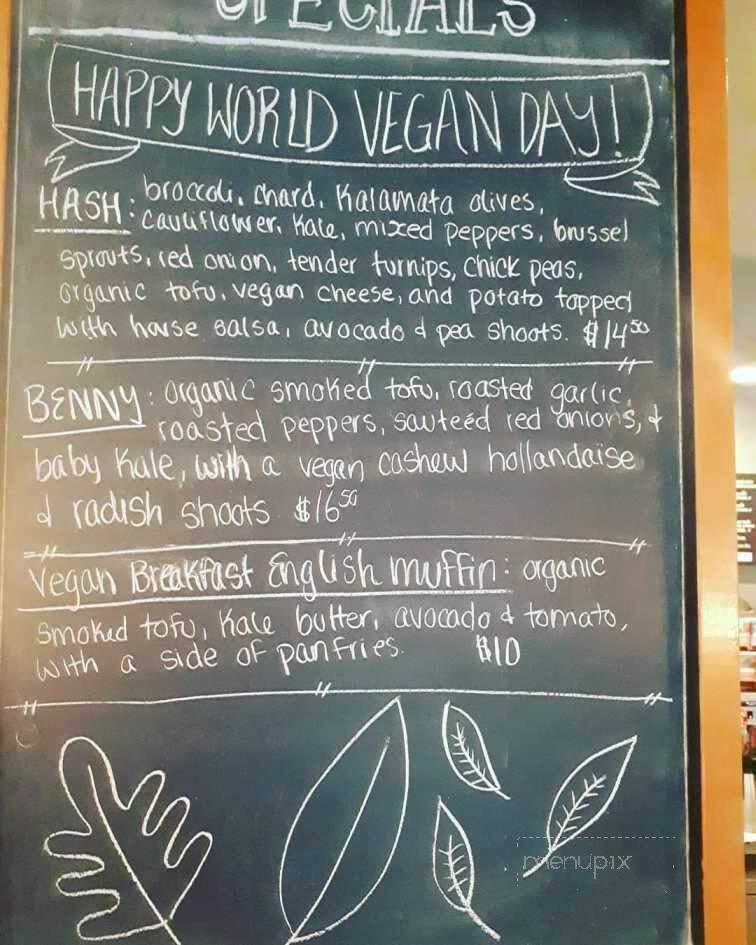 SPECIALS
HAPPY WORLD VEGAN DAY!
HASH: broccoli, chard, Kalamata olives,
cauliflower, Kale, mixed peppers, brussel
sprouts, red onion, tender turnips, chick peas,
organic tofu, vegan cheese, and potato topped
with house salsa, avocado & pea shoots. $14.50
BENNY: organic smoked tofu, roasted garlic,
roasted peppers, sauteéd red onions, &
baby Kale, with a vegan cashew hollandaise
& radish shoots $16.50
Vegan Breakfast English muffin: organic
smoked tofu, Kale butter, avocado & tomato,
with a side of panfries. $10
menupix